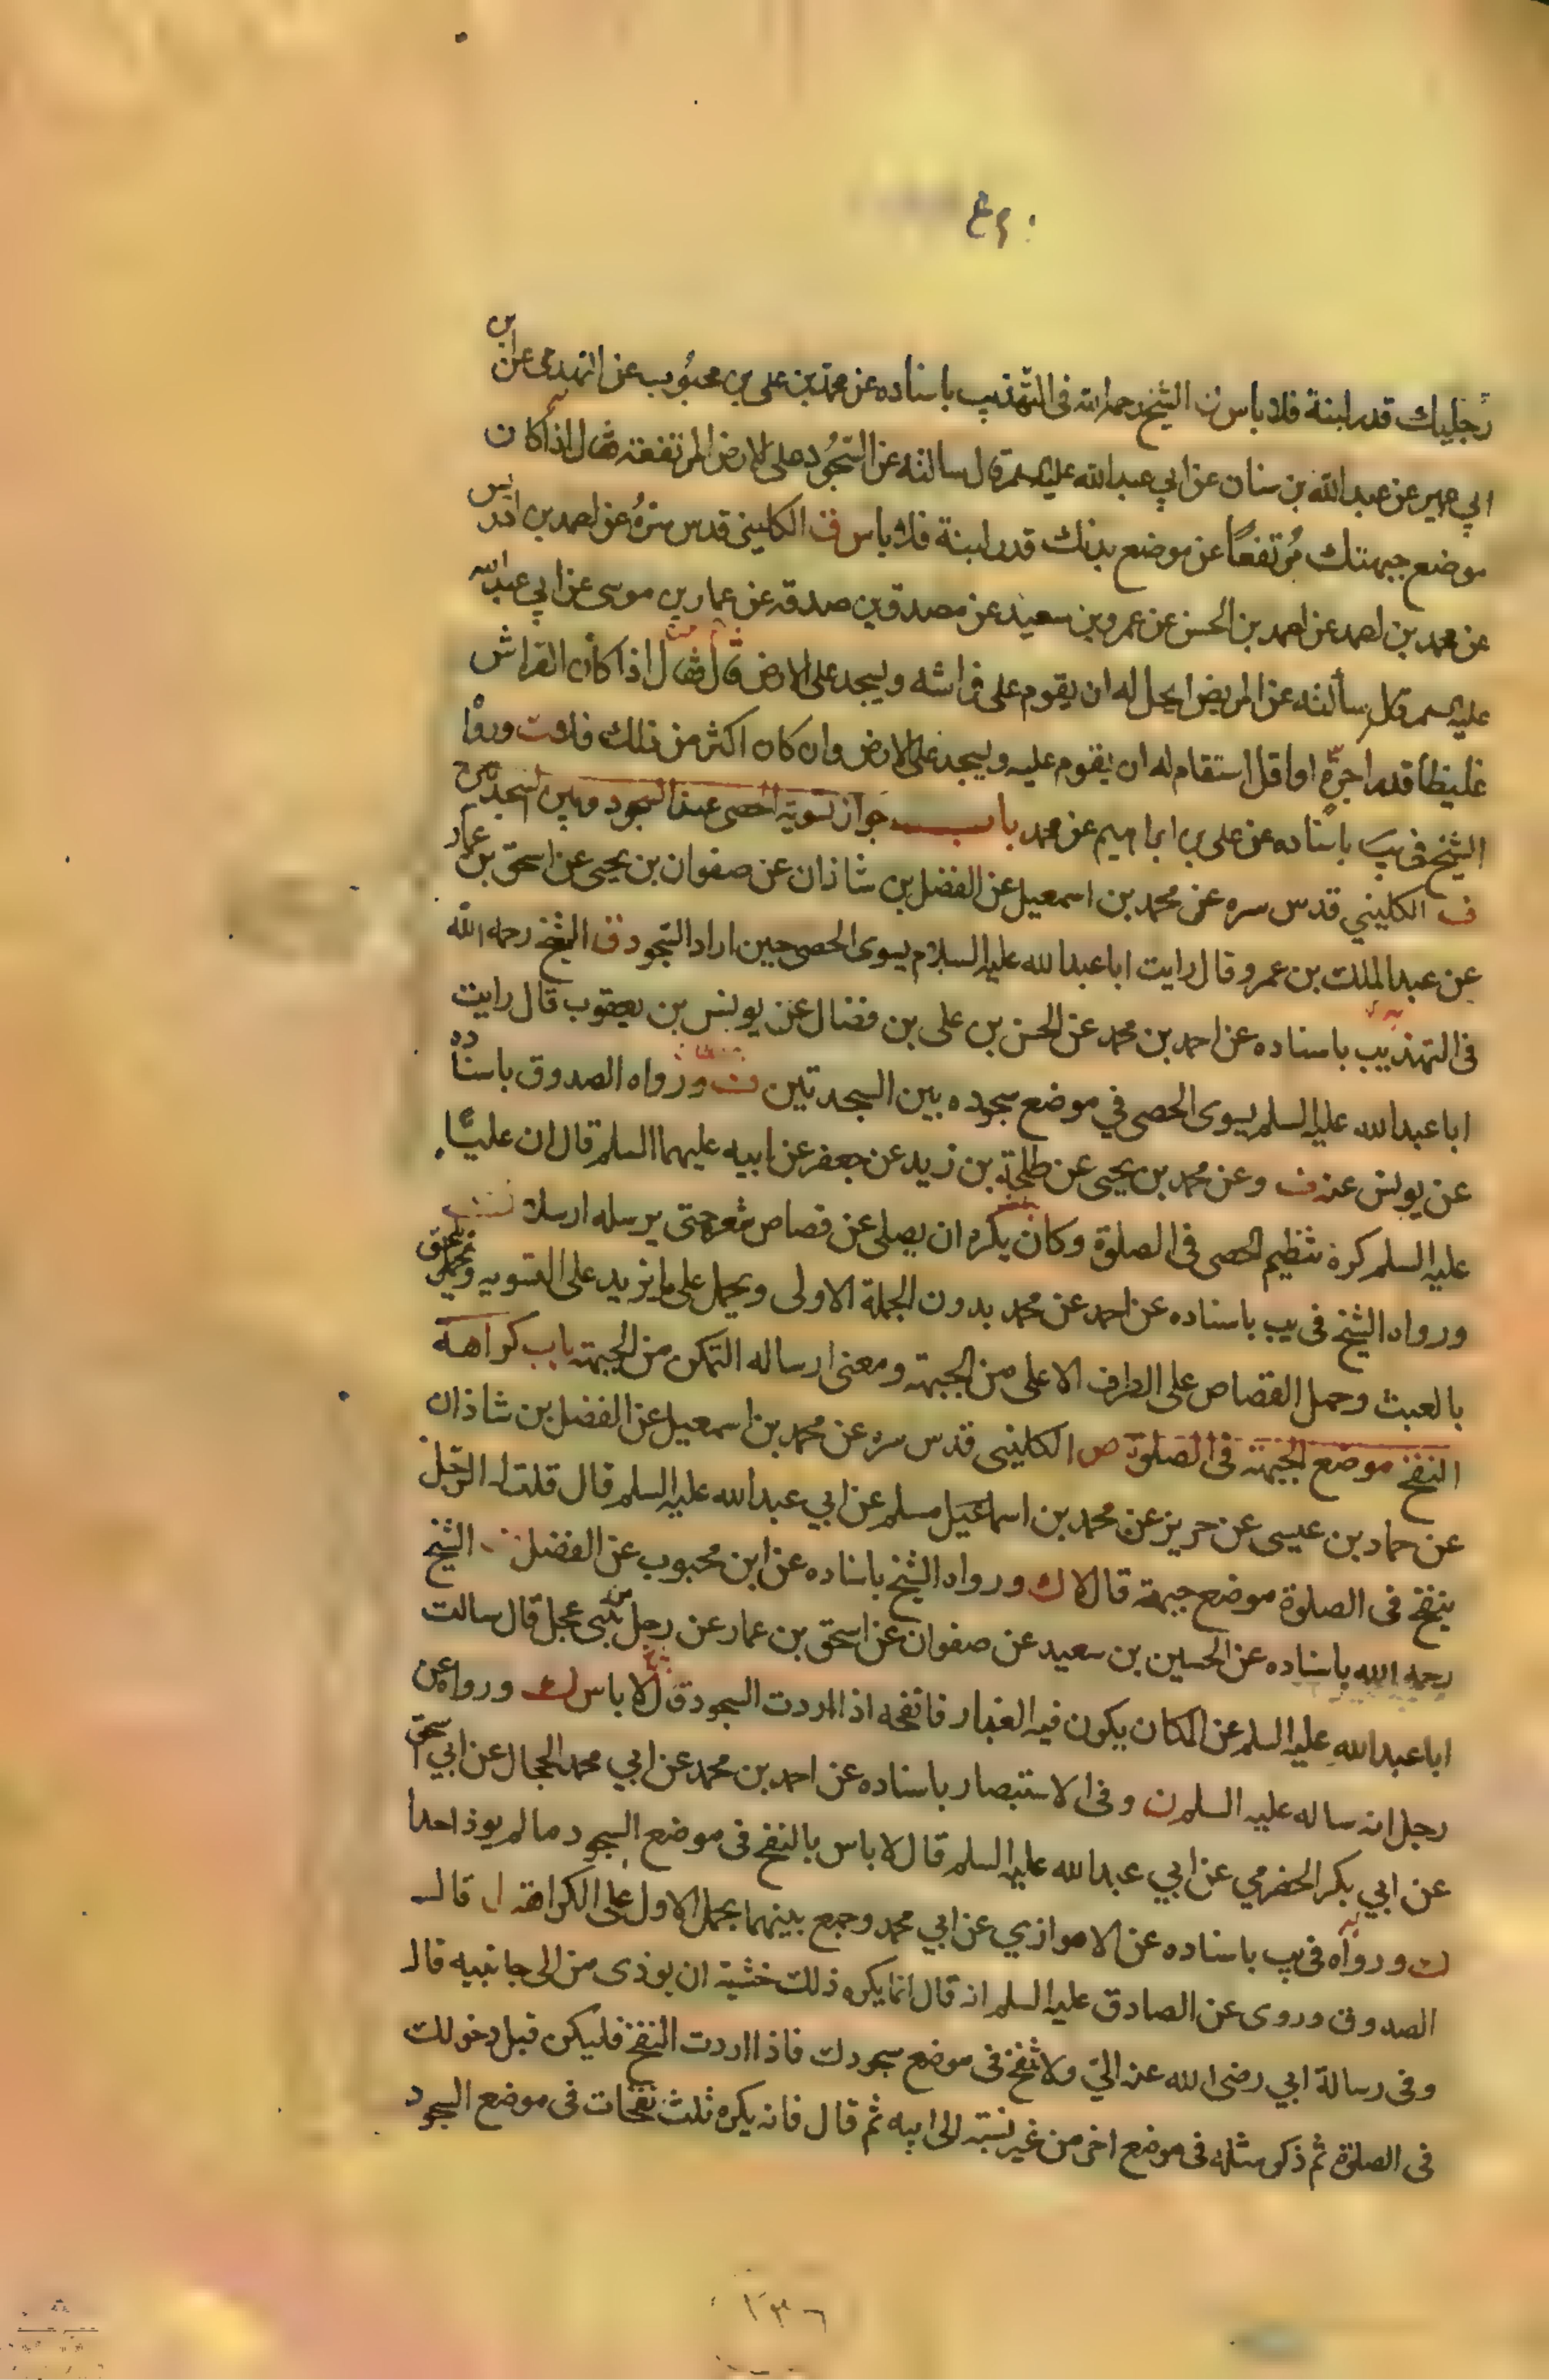 رجليك قدر لبنة فلا باس ن الشيخ رحمه الله فى التهذيب باسناده عن محمد بن على بن محبوب عن النهدى عن ابن
ابي عمير عن عبد الله بن سنان عن ابي عبد الله عليه السلم قال سالته عن السجود على الارض المرتفعة فقال اذا كان
موضع جبهتك مرتفعًا عن موضع بدنك قدر لبنة فلا باس ف الكلينى قدس سره عن احمد بن ادريس
عن محمد بن احمد عن احمد بن الحسن عن عمرو بن سعيد عن مصدق بن صدقه عن عمار بن موسى عن ابي عبد الله
عليه السلم قال سألته عن المريض ايحل له ان يقوم على فراشه ويسجد على الارض قال فقال اذا كان الفراش
غليظا قدر اجرة او اقل استقام له ان يقوم عليه ويسجد على الارض وان كان اكثر من ذلك فلا وروا
الشيخ فى يب باسناده عن على بن ابراهيم عن محمد باب جواز تسوية الحصى عند السجود وبين السجدتين
ف الكليني قدس سره عن محمد بن اسمعيل عن الفضل بن شاذان عن صفوان بن يحيى عن اسحق بن عمار
عن عبد الملك بن عمرو قال رايت ابا عبد الله عليه السلام يسوى الحصى حين اراد السجود ق الشيخ رحمه الله
فى التهذيب باسناده عن احمد بن محمد عن الحسن بن على بن فضال عن يونس بن يعقوب قال رايت
ابا عبد الله عليه السلم يسوى الحصى في موضع سجوده بين السجدتين ورواه الصدوق باسناده
عن يونس عنه ف وعن محمد بن يحيى عن طلحة بن زيد عن جعفر عن ابيه عليهما السلم قال ان عليًا
عليه السلم كره تنظيم الحصى فى الصلوة وكان يكره ان يصلى عن قصاص شعره حتى يرسله ارسلا
ورواه الشيخ فى يب باسناده عن احمد عن محمد بدون الجملة الاولى ويحمل على ما يزيد على التسويه
بالعبث وحمل القصاص على الطرف الاعلى من الجبهة ومعنى ارساله التمكن من الجبهة باب كراهة
النفخ موضع الجبهة فى الصلوة ص الكلينى قدس سره عن محمد بن اسمعيل عن الفضل بن شاذان
عن حماد بن عيسى عن حريز عن محمد بن اسماعيل مسلم عن ابي عبد الله عليه السلم قال قلت له الرجل
ينفخ فى الصلوة موضع جبهة قال لا ك ورواه الشيخ باسناده عن ابن محبوب عن الفضل الشيخ
رحمه الله باسناده عن الحسين بن سعيد عن صفوان عن اسحق بن عمار عن رجل من بنى عجل قال سالت
ابا عبد الله عليه السلم عن المكان يكون فيه الغبار فانفخه اذا اردت السجود قال لا باس ك ورواه عن
رجل انه ساله عليه السلم ن وفى الاستبصار باسناده عن احمد بن محمد عن ابي محمد الحجال عن ابي اسحق
عن ابي بكر الحضرمي عن ابي عبد الله عليه السلم قال لا باس بالنفخ فى موضع السجود ما لم يوذ احدا
ك ورواه فى يب باسناده عن الاهوازي عن ابي محمد وجمع بينهما بحمل الاول على الكراهة ل قال
الصدوق وروى عن الصادق عليه السلم انه قال انما يكره ذلك خشية ان يوذى من الى جانبيه قال
وفى رسالة ابي رضى الله عنه الي ولا تنفخ فى موضع سجودك فاذا اردت النفخ فليكن قبل دخولك
فى الصلوة ثم ذكر مثله فى موضع اخر من غير نسبته الى ابيه ثم قال فانه يكره ثلث نفخات فى موضع السجود
١٣٦